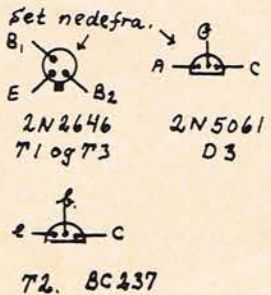 Set nedefra.
B1
E
B2
2N2646
T1 og T3
G
A
C
2N5061
D3
b.
e
C
T2. BC237